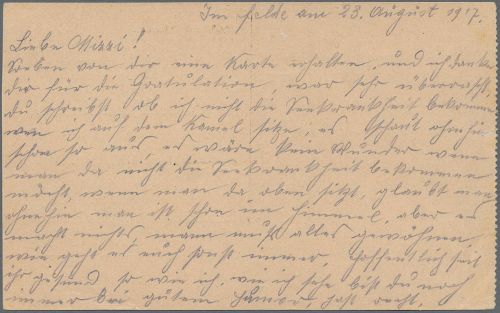 Im felde am 23. August 1917.
Liebe Mizzi!
Soeben von dir eine Karte erhalten, und ich danke
dir für die Gratulation, war sehr überrascht,
du schreibst ob ich nicht die Seekrankheit bekomme
wen ich auf dem Kamel sitze, es schaut ohnehin
schon so aus, es wäre kein Wunder wenn
man da nicht die Seekrankheit bekommen
möcht, wenn man da oben sitzt, glaubt man
ohnehin man ist schon im himmel, aber es
macht nichts, mann muß alles gewöhnen,
wie geht es euch sonst immer, hoffentlich seit
ihr gesund so wie ich, wie ich sehe bist du noch
immer bei gutem Humor, hast recht,